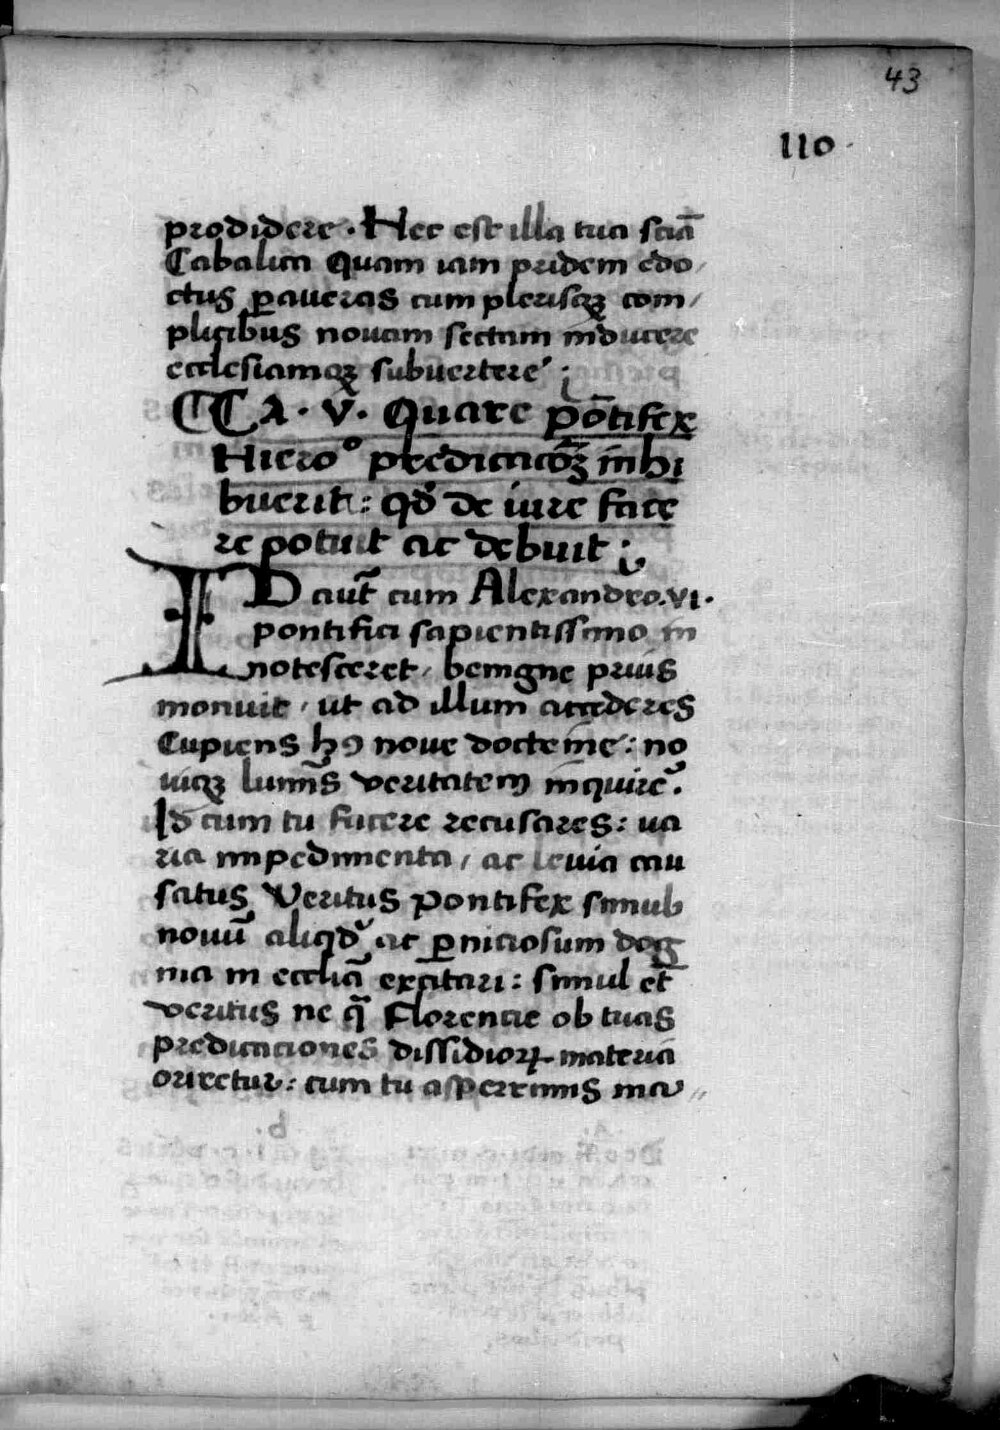 43
110
prodidere. Hec est illa tua sciā
Cabalica Quam iam pridem edo/
ctus ꝑaueras cum plerisqꝫ com/
plicibus nouam sectam inducere
ecclesiamqꝫ subuertere;
CA. V. Quare Pōtifex
Hiero° predicatiōꝫ inhi
buerit: qd̄ de iure face
re potuit ac debuit;
ID aut̄ cum Alexandro .VI.
pontifici sapientissimo in
notesceret / benigne prius
monuit / ut ad illum accederes
Cupiens hꝰ noue doctrine: no
uiqꝫ lumīs veritatem inquire᷑.
Id cum tu facere recusares: ua
ria impedimenta / ac leuia cau
satus Veritus Pontifex simul
nouū aliqd̄ ac ꝑniciosum dog
ma in eccliā excitari: simul et̄
veritus ne q̄ Florentie ob tuas
predicaciones dissidioꝝ materia
oriretur: cum tu asperrimis ma //